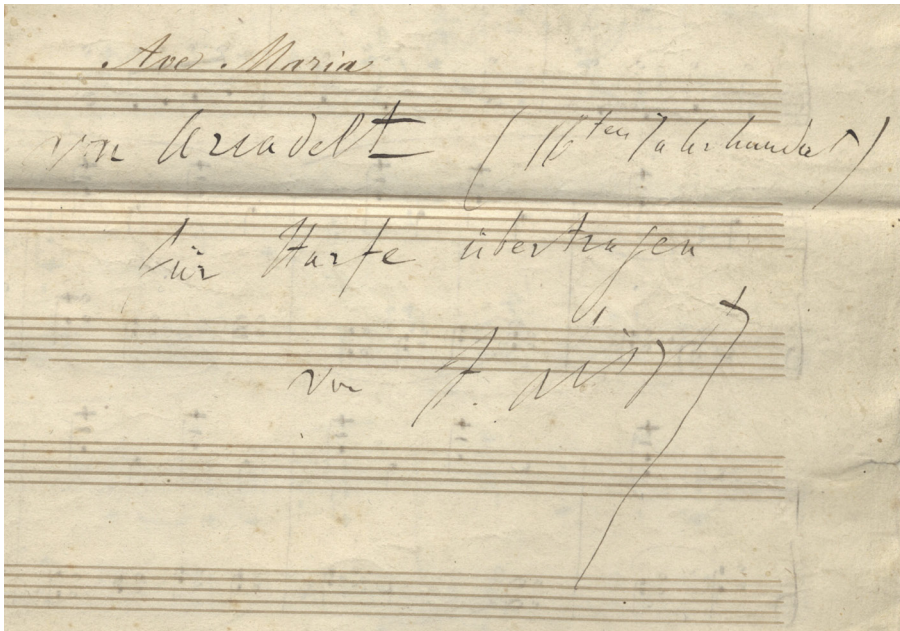 Ave Maria
von Arcadelt (16ten Jahrhundert)
für Harfe übertragen
von F. Liszt